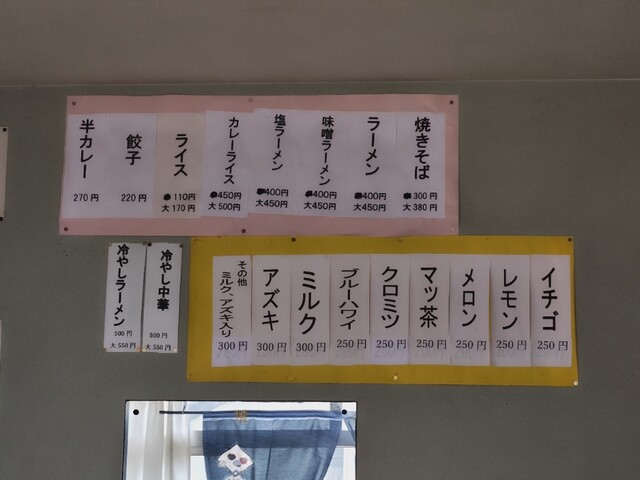 焼きそば
300円
大 380円
ラーメン
400円
大450円
味噌ラーメン
400円
大450円
塩ラーメン
400円
大450円
カレーライス
450円
大 500円
ライス
110円
大 170円
餃子
220円
半カレー
270円
冷やし中華
500円
大 550円
冷やしラーメン
500円
大 550円
イチゴ
250円
レモン
250円
メロン
250円
マッ茶
250円
クロミツ
250円
ブルーハワイ
250円
ミルク
300円
アズキ
300円
その他
ミルク、アズキ入り
300円